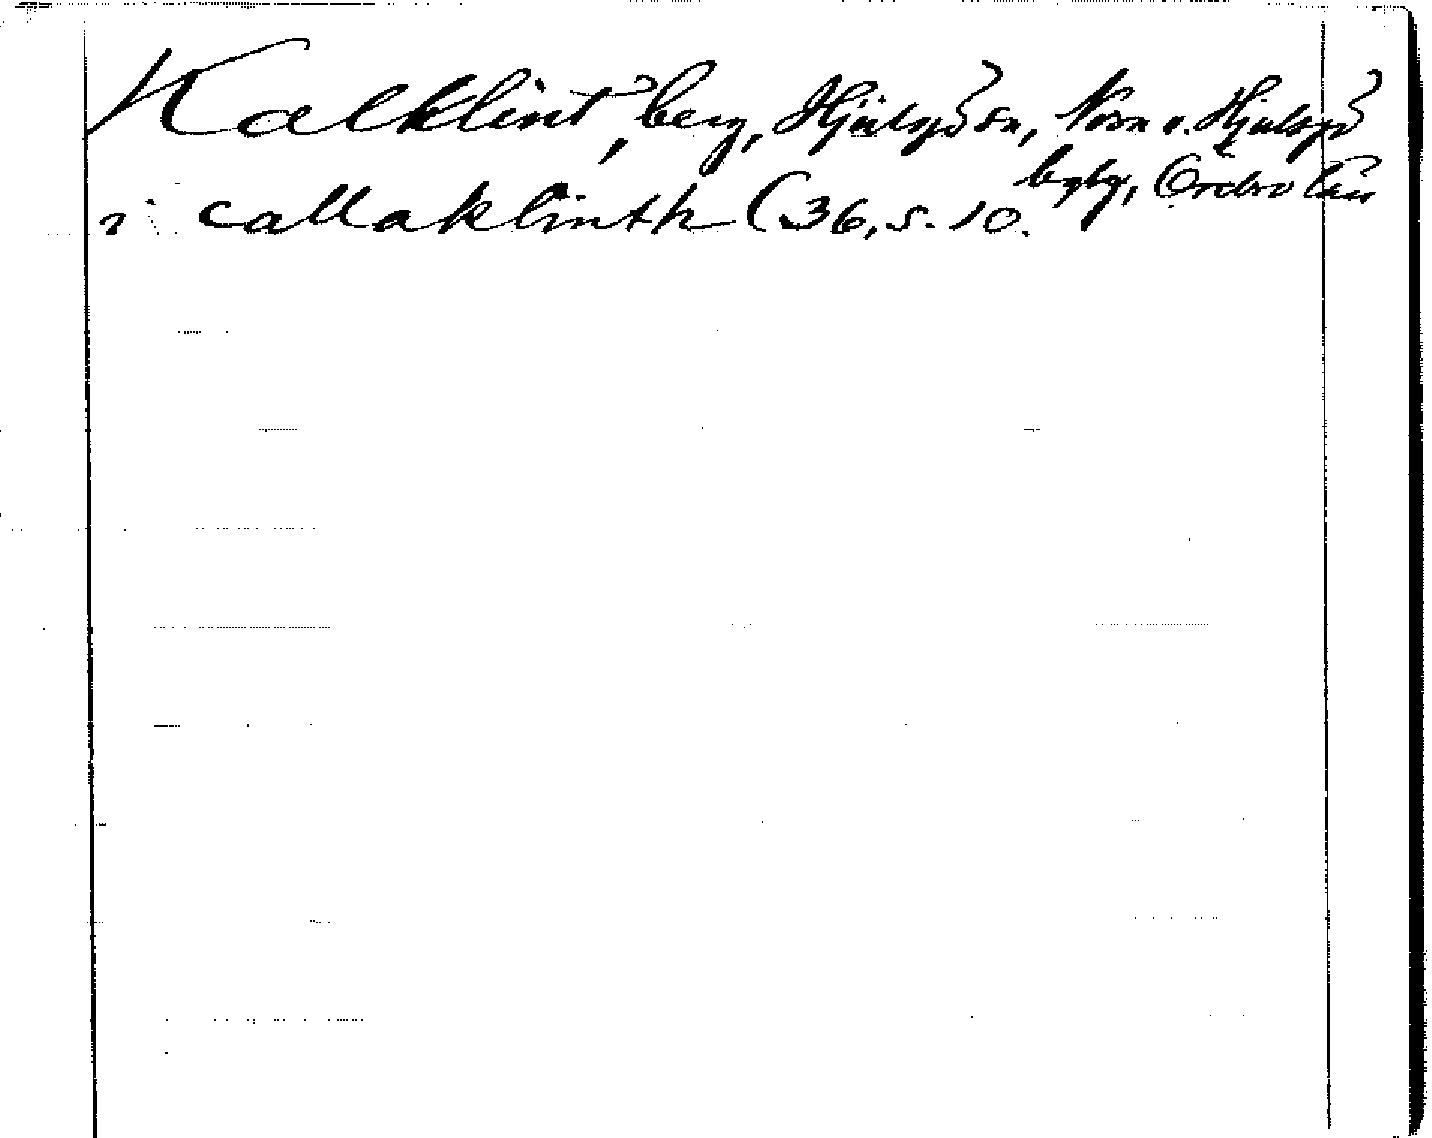 Kalklint, berg, Hjulsjö sn, Nora o. Hjulsjö
bgslg, Örebro län
i callaklinth (36, s. 10.